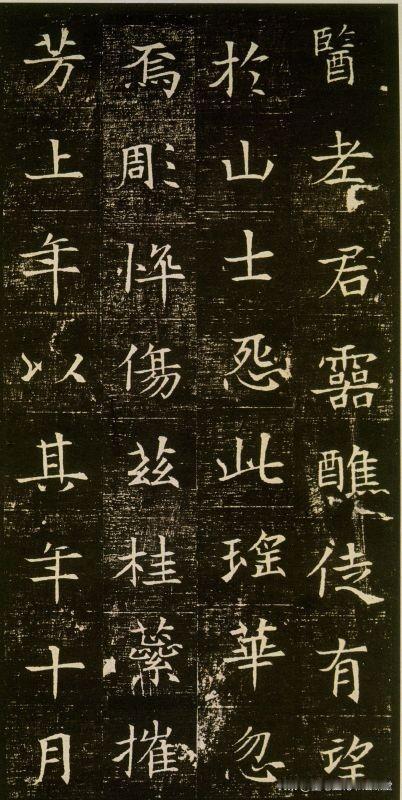 醫老君靈醮徒有望
於山士怨此瑤華忽
焉彫悴傷茲桂蘂摧
芳上年以其年十月